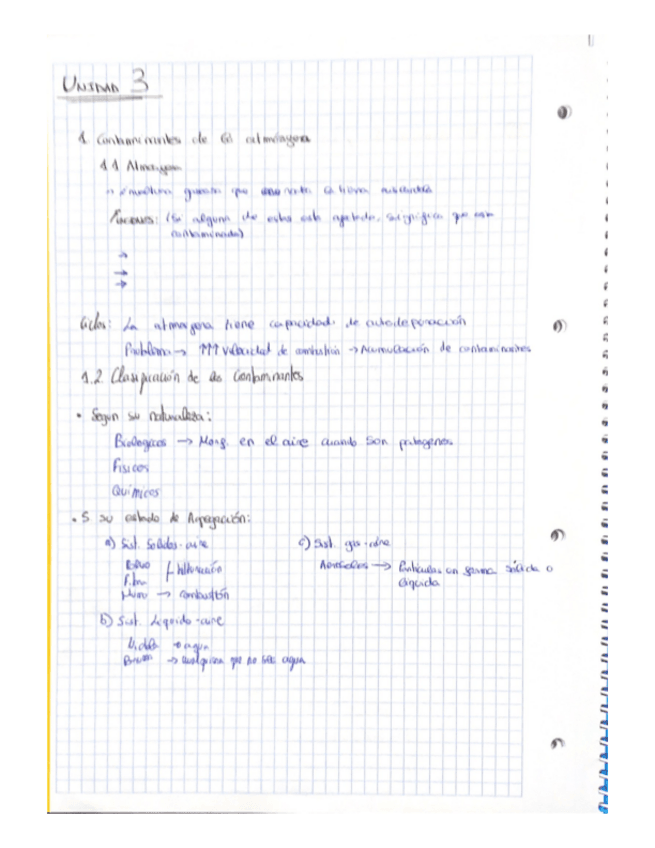 UNIDAD 3
1 Contaminantes de la atmósfera
1.1 Atmósfera
gaseosa que la tierra
Funciones: (Si alguna de estas está afectada, significa que está
contaminada)
→
→
→
Ciclos: La atmosfera tiene capacidad de autodepuración
Problema → ↑↑↑ velocidad de combustión → Acumulación de contaminantes
1.2. Clasificación de los Contaminantes
• Segun su naturaleza:
Biologicos → Morg. en el aire cuando son patogenos
Físicos
Químicos
• S su estado de Agregación:
a) Sist. Solidos-aire
Polvo
Humo → combustión
b) Sist. Liquido-aire
→ agua
Bruma → cualquiera que no sea agua
c) Sist. gas-aire
Aerosoles → Partículas en forma sólida o
líquida